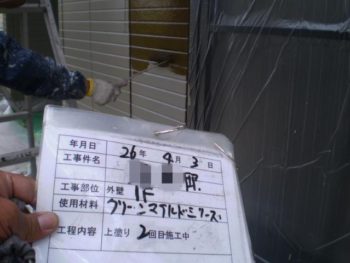 年月日 26年 4月 3日
工事件名 邸
工事部位 外壁 1F
使用材料 クリーンマイルドシリーズ
工程内容 上塗り 2回目施工中